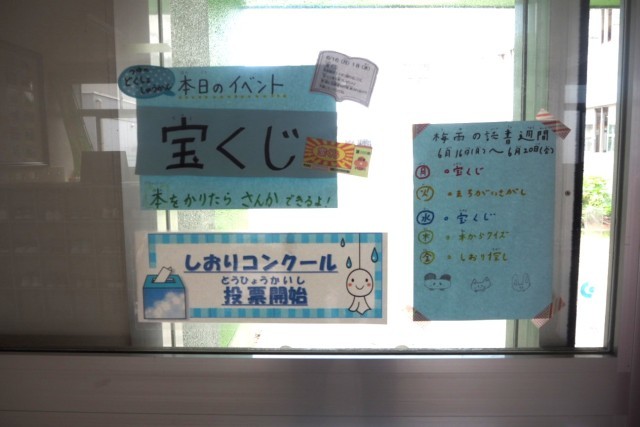 本日のイベント
宝くじ
本をかりたら さんかできるよ!
しおりコンクール
とうひょうかいし
投票開始
梅雨の読書週間
6月16日(月)〜6月20日(金)
月 宝くじ
火 まちがいさがし
水 宝くじ
木 クイズ
金 しおり探し